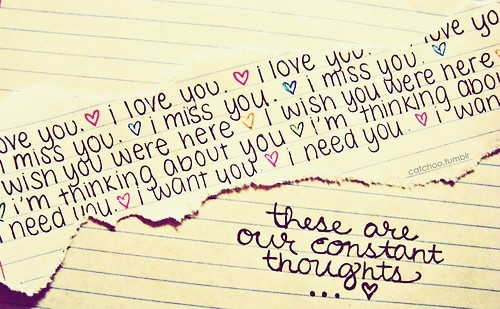 ove you. ♡ i love you. ♡ i love you. love yo
i miss you. ♡ i miss you. ♡ i miss you. ♡
wish you were here ♡ i wish you were here
♡ i'm thinking about you ♡ i'm thinking abou
i need you. ♡ i want you ♡ i need you. ♡ i wan
catchoo.tumblr
these are
our constant
thoughts
... ♡